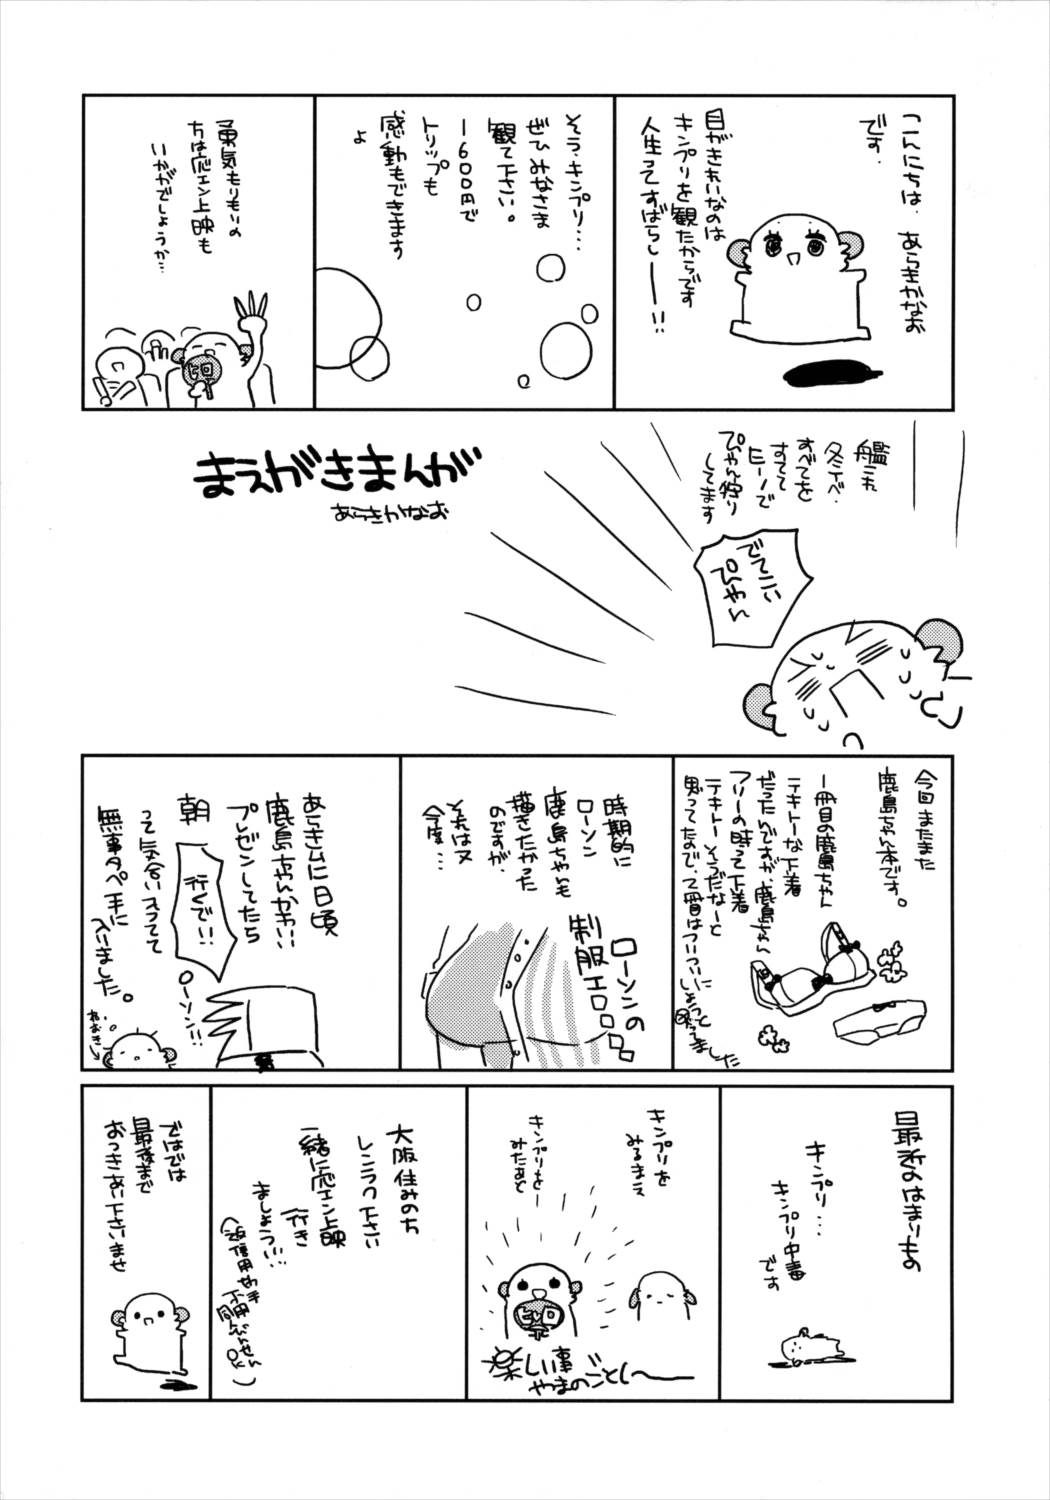 こんにちは。あらきかなお
です。
目がきれいなのは
キンプリを観たからです
人生ってすばらし――!!
そう、キンプリ…
ぜひみなさま
観て下さい。
1600円で
トリップも
感動もできます
よ
勇気もりもりの
方は応エン上映も
いかがでしょうか…
まえがきまんが
あらきかなお
艦これ
冬イベ、
すべてを
すてて
ヒーノで
ぴゃん狩り
してます
でてこい
ぴゃん
今回またまた
鹿島ちゃん本です。
一冊目の鹿島ちゃん
テキトーな下着
だったんですが、鹿島ちゃん
フリーの時って下着
テキトーそうだなーと
思ってたので、2冊目はついついに
時期的に
ローソン
鹿島ちゃんも
描きたかった
のですが、
それは又
今度…
ローソンの
制服エロ
あらきムに日頃
鹿島ちゃんかわいい
プレゼンしてたら
朝
行くで!!
ローソン!!
って気合い入ってて
無事タペ手に
入りました。
ねおき
最近のはまりもの
キンプリ…
キンプリ中毒
です
キンプリを
みるまえ
キンプリを
みたあと
ヒロ
楽しい事
やまのごとし〜
大阪住みのち
レンラク下さい
一緒に応エン上映
行き
ましょう…
ではでは
最後まで
おつきあい下さいませ